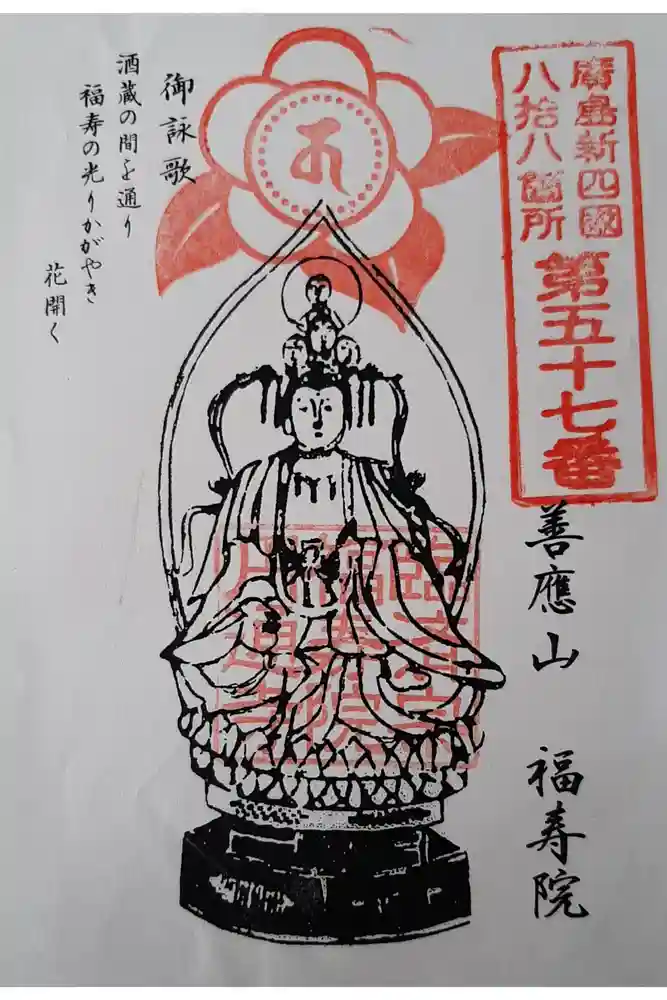 廣島新四國
八拾八箇所
第五十七番
善應山 福寿院
御詠歌
酒蔵の間を通り
福寿の光りかがやき
花開く
臨済宗
福寿院